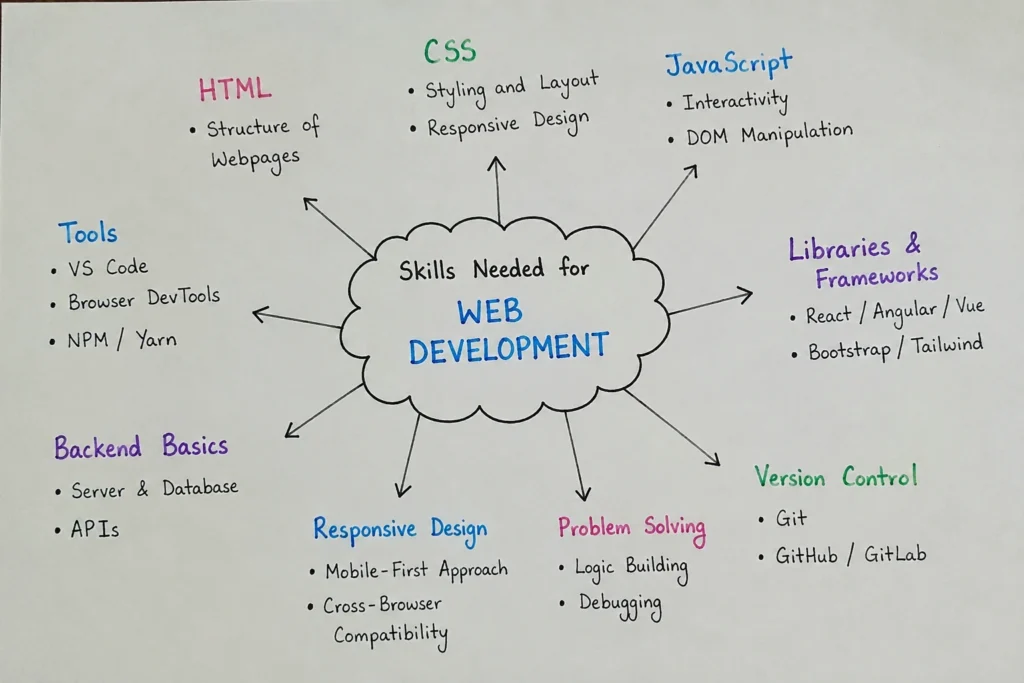 CSS
• Styling and Layout
• Responsive Design
HTML
• Structure of
Webpages
JavaScript
• Interactivity
• DOM Manipulation
Tools
• VS Code
• Browser DevTools
• NPM / Yarn
Skills Needed for
WEB
DEVELOPMENT
Libraries &
Frameworks
• React / Angular / Vue
• Bootstrap / Tailwind
Backend Basics
• Server & Database
• APIs
Responsive Design
• Mobile-First Approach
• Cross-Browser
Compatibility
Problem Solving
• Logic Building
• Debugging
Version Control
• Git
• GitHub / GitLab